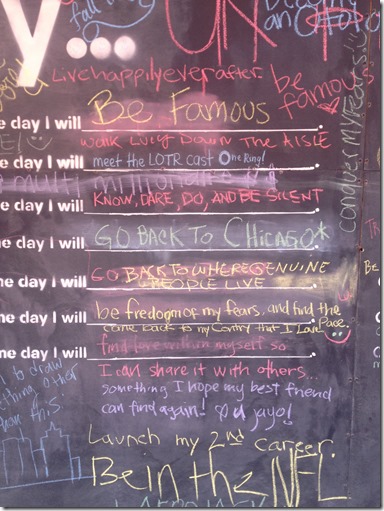 y...
Live happily ever after.
be famous
Be Famous
e day I will
walk Lucy DOWN The AISLE
e day I will meet the LOTR cast One Ring!
e day I will KNOW, DARE, DO, AND BE SILENT
e day I will GO BACK TO CHICAGO*
conquer MY Fears
e day I will GO BACK TO WHERE GENUINE
PEOPLE LIVE
e day I will be fredom of my fears, and find the
Pace.
come back to my Contry that I Love
me day I will find love within myself so
I can share it with others...
something I hope my best friend
can find again!
to draw
Launch my 2nd career.
Be in the NFL